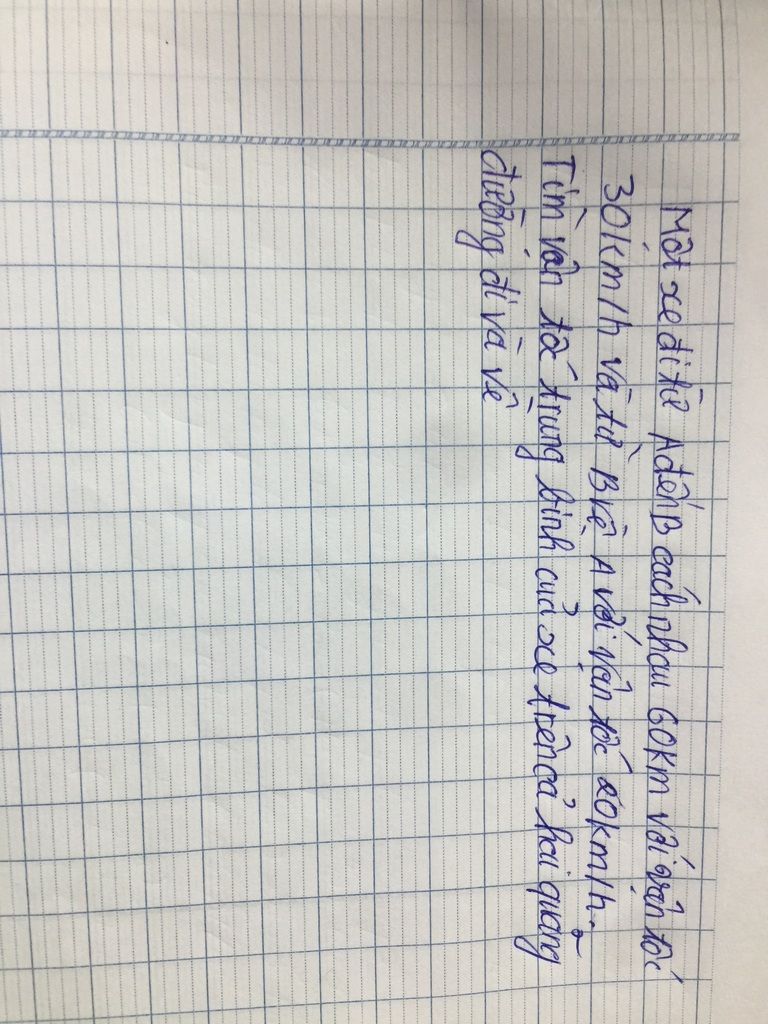 Một xe đi từ A đến B cách nhau 60km với vận tốc
30km/h và từ B về A với vận tốc 20km/h.
Tìm vận tốc trung bình của xe trên cả hai quãng
đường đi và về